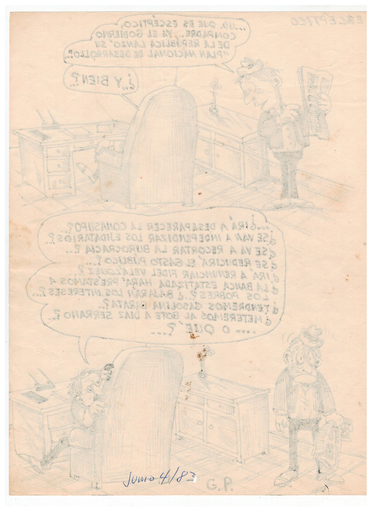 ESCEPTICO
....UD. QUE ES ESCÉPTICO,
COMPADRE, YA EL GOBIERNO
DE LA REPÚBLICA LANZÓ SU
"PLAN NACIONAL DE DESARROLLO"...
¿Y BIEN?..
...¿IRÁ A DESAPARECER LA CONASUPO?
¿SE VAN A INDEPENDIZAR LOS EJIDATARIOS?
¿SE VA A RECORTAR LA BUROCRACIA?
¿SE REDUCIRÁ EL GASTO PÚBLICO?
¿IRÁ A RENUNCIAR FIDEL VELÁZQUEZ?
¿LA BANCA ESTATIZADA HARÁ PRÉSTAMOS A
LOS POBRES?. ¿BAJARÁN LOS INTERESES?..
¿TENDREMOS GASOLINA BARATA?.
¿METEREMOS AL BOTE A DÍAZ SERRANO?
....O QUÉ?...
Junio 4/83
G.P.